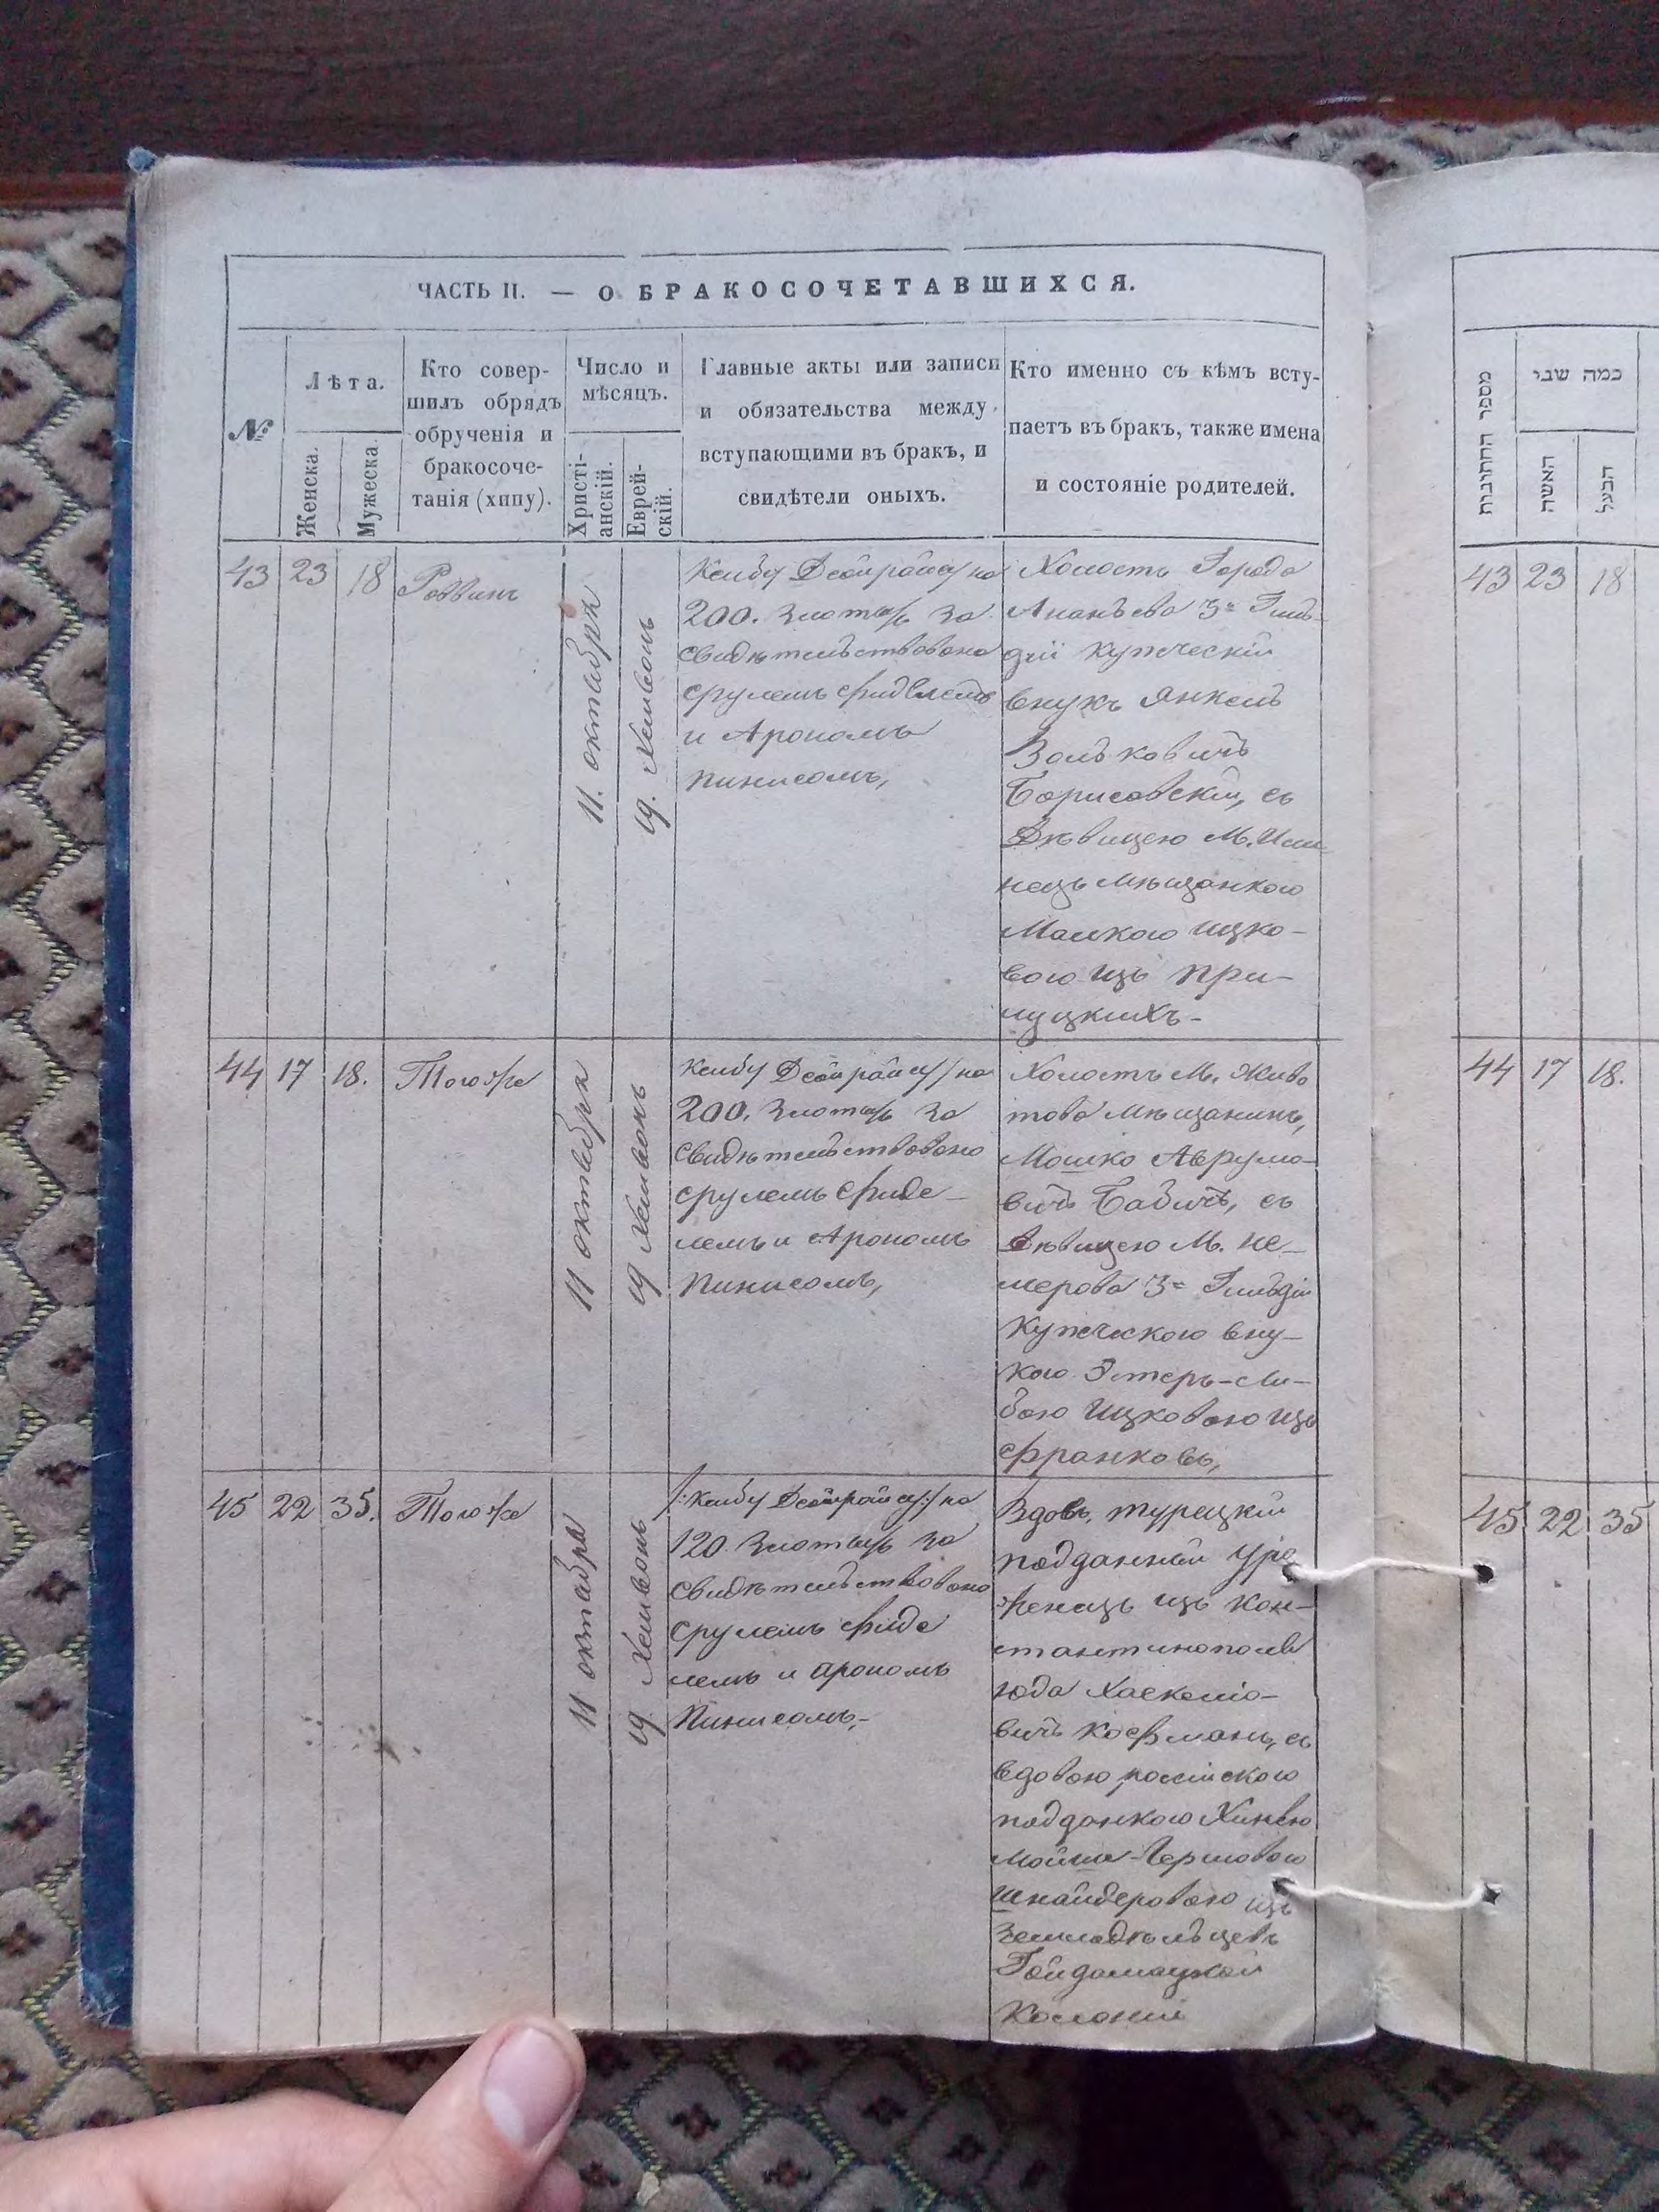 ЧАСТЬ II. — О БРАКОСОЧЕТАВШИХСЯ.
№
Лѣта.
Женска.
Мужеска.
Кто совер-
шилъ обрядъ
обрученія и
бракосоче-
танія (хипу).
Число и
мѣсяцъ.
Христі-
анскій.
Еврей-
скій.
Главные акты или записи
и обязательства между
вступающими въ бракъ, и
свидѣтели оныхъ.
Кто именно съ кѣмъ всту-
паетъ въ бракъ, также имена
и состояніе родителей.
43 23 18 Раввинъ
11. октября
19. Хешвонъ
на
200. злотыхъ за
свидѣтельствовано
Срулемъ Фиделемъ
и Арономъ
Пинисомъ,
Холостъ Города
Ананьева 3й Гиль-
діи купеческій
внукъ Янкель
Волковичъ
Борисовскій, съ
Дѣвицею М.
мѣщанкою
Малкою Ицко-
вою изъ При-
луцкихъ-
44 17 18. Тогоже
11 октября
19 Хешвонъ
на
200. злотыхъ за
свидѣтельствовано
Срулемъ Фиде-
лемъ и Арономъ
Пинисомъ,
Холостъ М. Живо
това мѣщанинъ,
Мошко Аврумо-
вичъ Бабичъ, съ
Дѣвицею М. Не-
мерова 3й Гильдіи
Купеческою вну-
кою Эстеръ-Ли-
бою Ицковою изъ
Франковъ,
45 22 35. Тогоже
11 октября
19 Хешвонъ
на
120 злотыхъ за
свидѣтельствовано
Срулемъ Фиде
лемъ и Арономъ
Пинисомъ,-
Вдовъ, турецкій
подданный уро
женецъ изъ Кон-
стантинополя
Юда Хаскеліо-
вичъ Кофманъ, съ
вдовою россійскою
подданкою
Мойше-Гершовою
Шнайдеровою изъ
земледѣльцевъ
Гойдамацкой
Колоніи
מספר החתונות
כמה שני
האשה
הבעל
43 23 18
44 17 18.
45 22 35